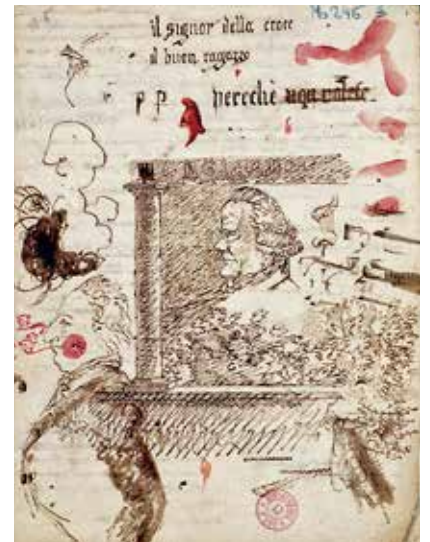 Ms 246 3
il signor della croce
il buon ragazzo
P P perchè non volete